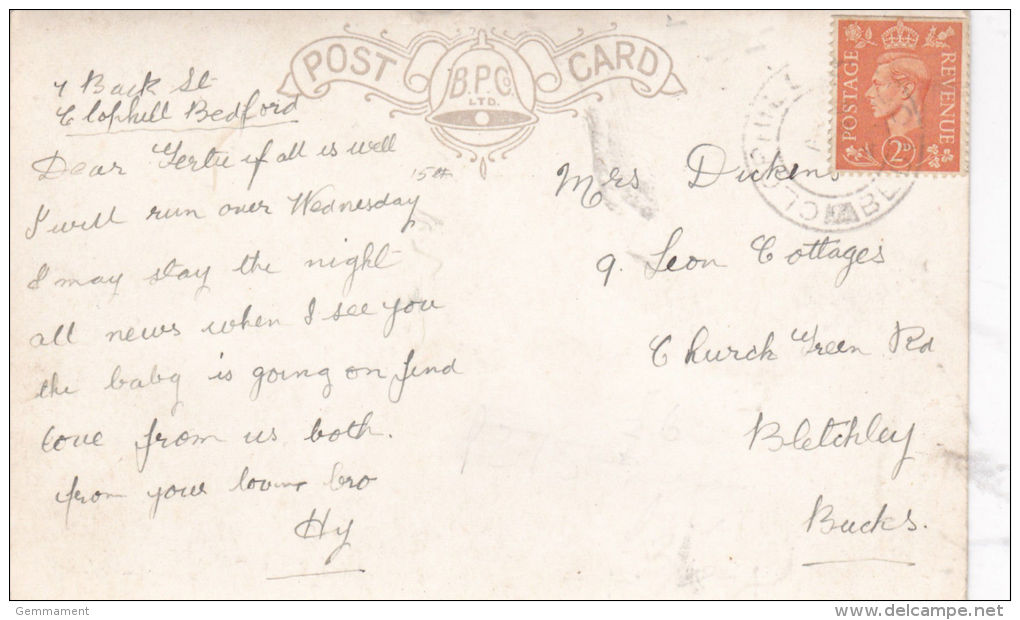 POST CARD
B.P.C. LTD.
POSTAGE REVENUE
2D
CLOPHILL
BE
7 Back St
Clophill Bedford
Dear Gertie if all is well
I will run over Wednesday 15th
I may stay the night
all news when I see you
the baby is going on find
love from us both.
from your loving bro
Hy
Mrs Dickens
9. Leon Cottages
Church Green Rd
Bletchley
Bucks.
Gemmament
www.delcampe.net